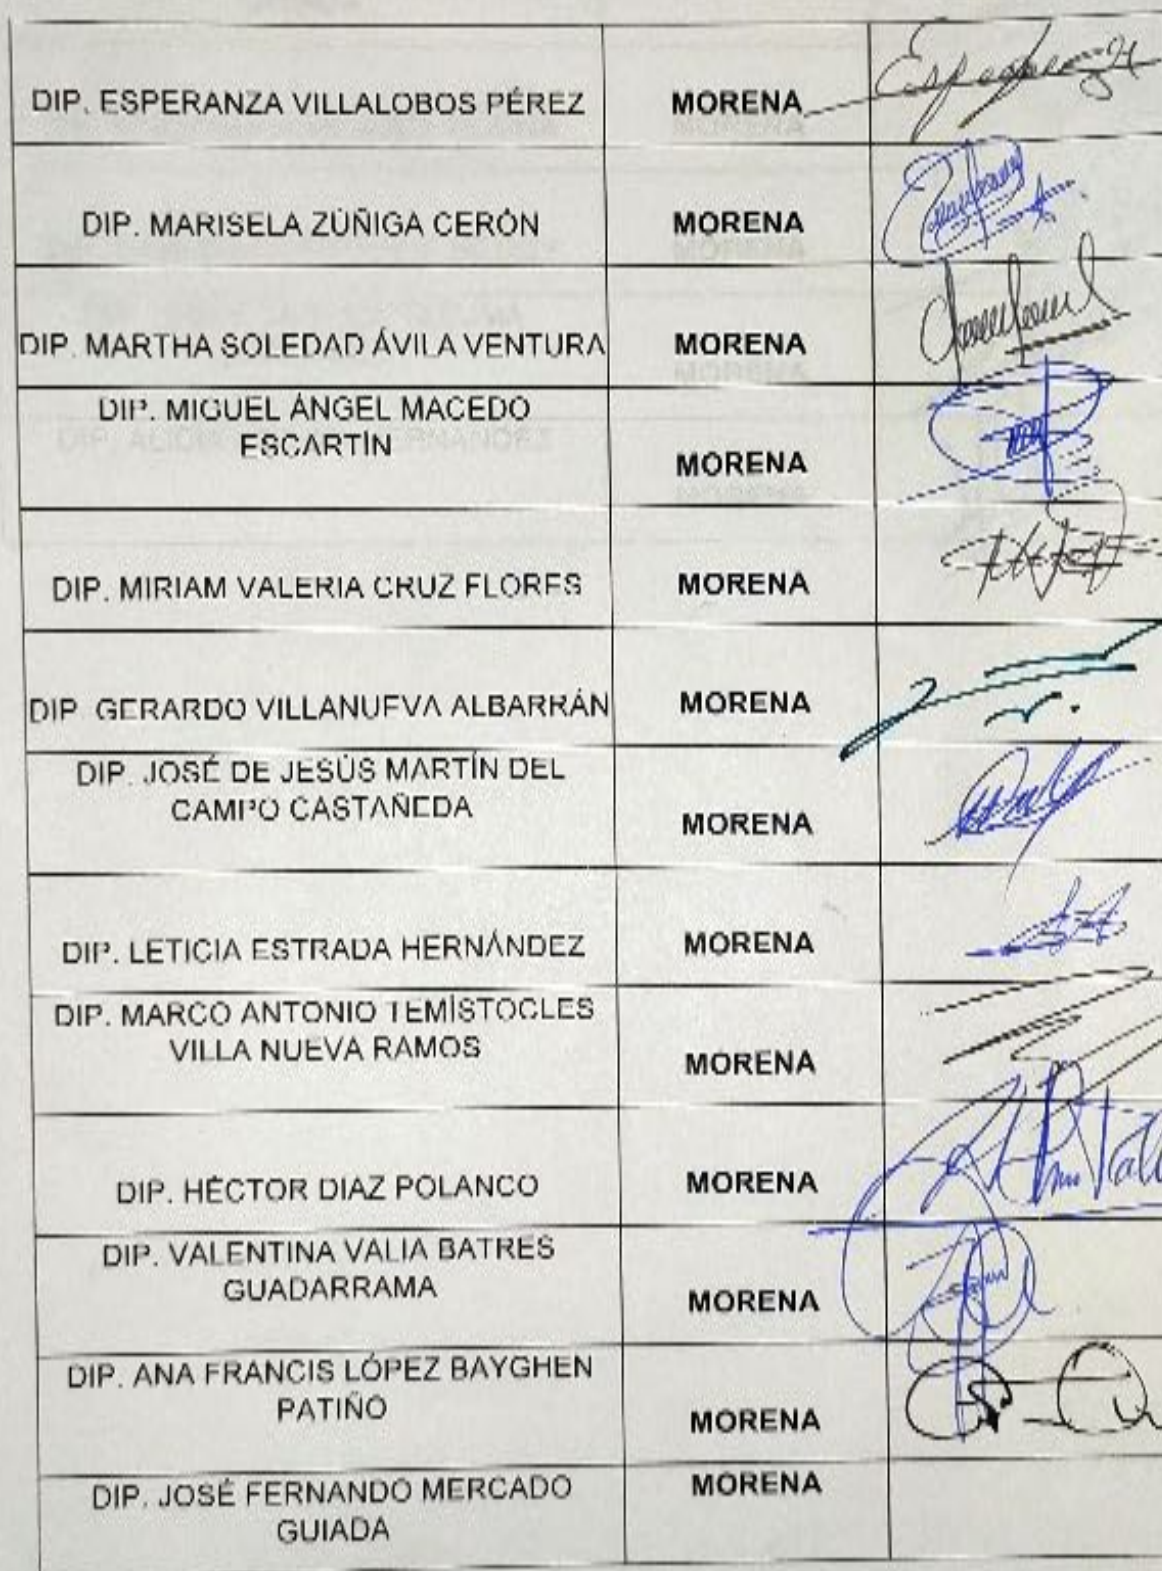 DIP. ESPERANZA VILLALOBOS PÉREZ MORENA
DIP. MARISELA ZÚÑIGA CERÓN MORENA
DIP. MARTHA SOLEDAD ÁVILA VENTURA MORENA
DIP. MIGUEL ÁNGEL MACEDO
ESCARTÍN
MORENA
DIP. MIRIAM VALERIA CRUZ FLORES MORENA
DIP. GERARDO VILLANUEVA ALBARRÁN MORENA
DIP. JOSÉ DE JESÚS MARTÍN DEL
CAMPO CASTAÑEDA
MORENA
DIP. LETICIA ESTRADA HERNÁNDEZ MORENA
DIP. MARCO ANTONIO TEMÍSTOCLES
VILLA NUEVA RAMOS
MORENA
DIP. HÉCTOR DIAZ POLANCO MORENA
DIP. VALENTINA VALIA BATRES
GUADARRAMA
MORENA
DIP. ANA FRANCIS LÓPEZ BAYGHEN
PATIÑO
MORENA
DIP. JOSÉ FERNANDO MERCADO MORENA
GUIADA